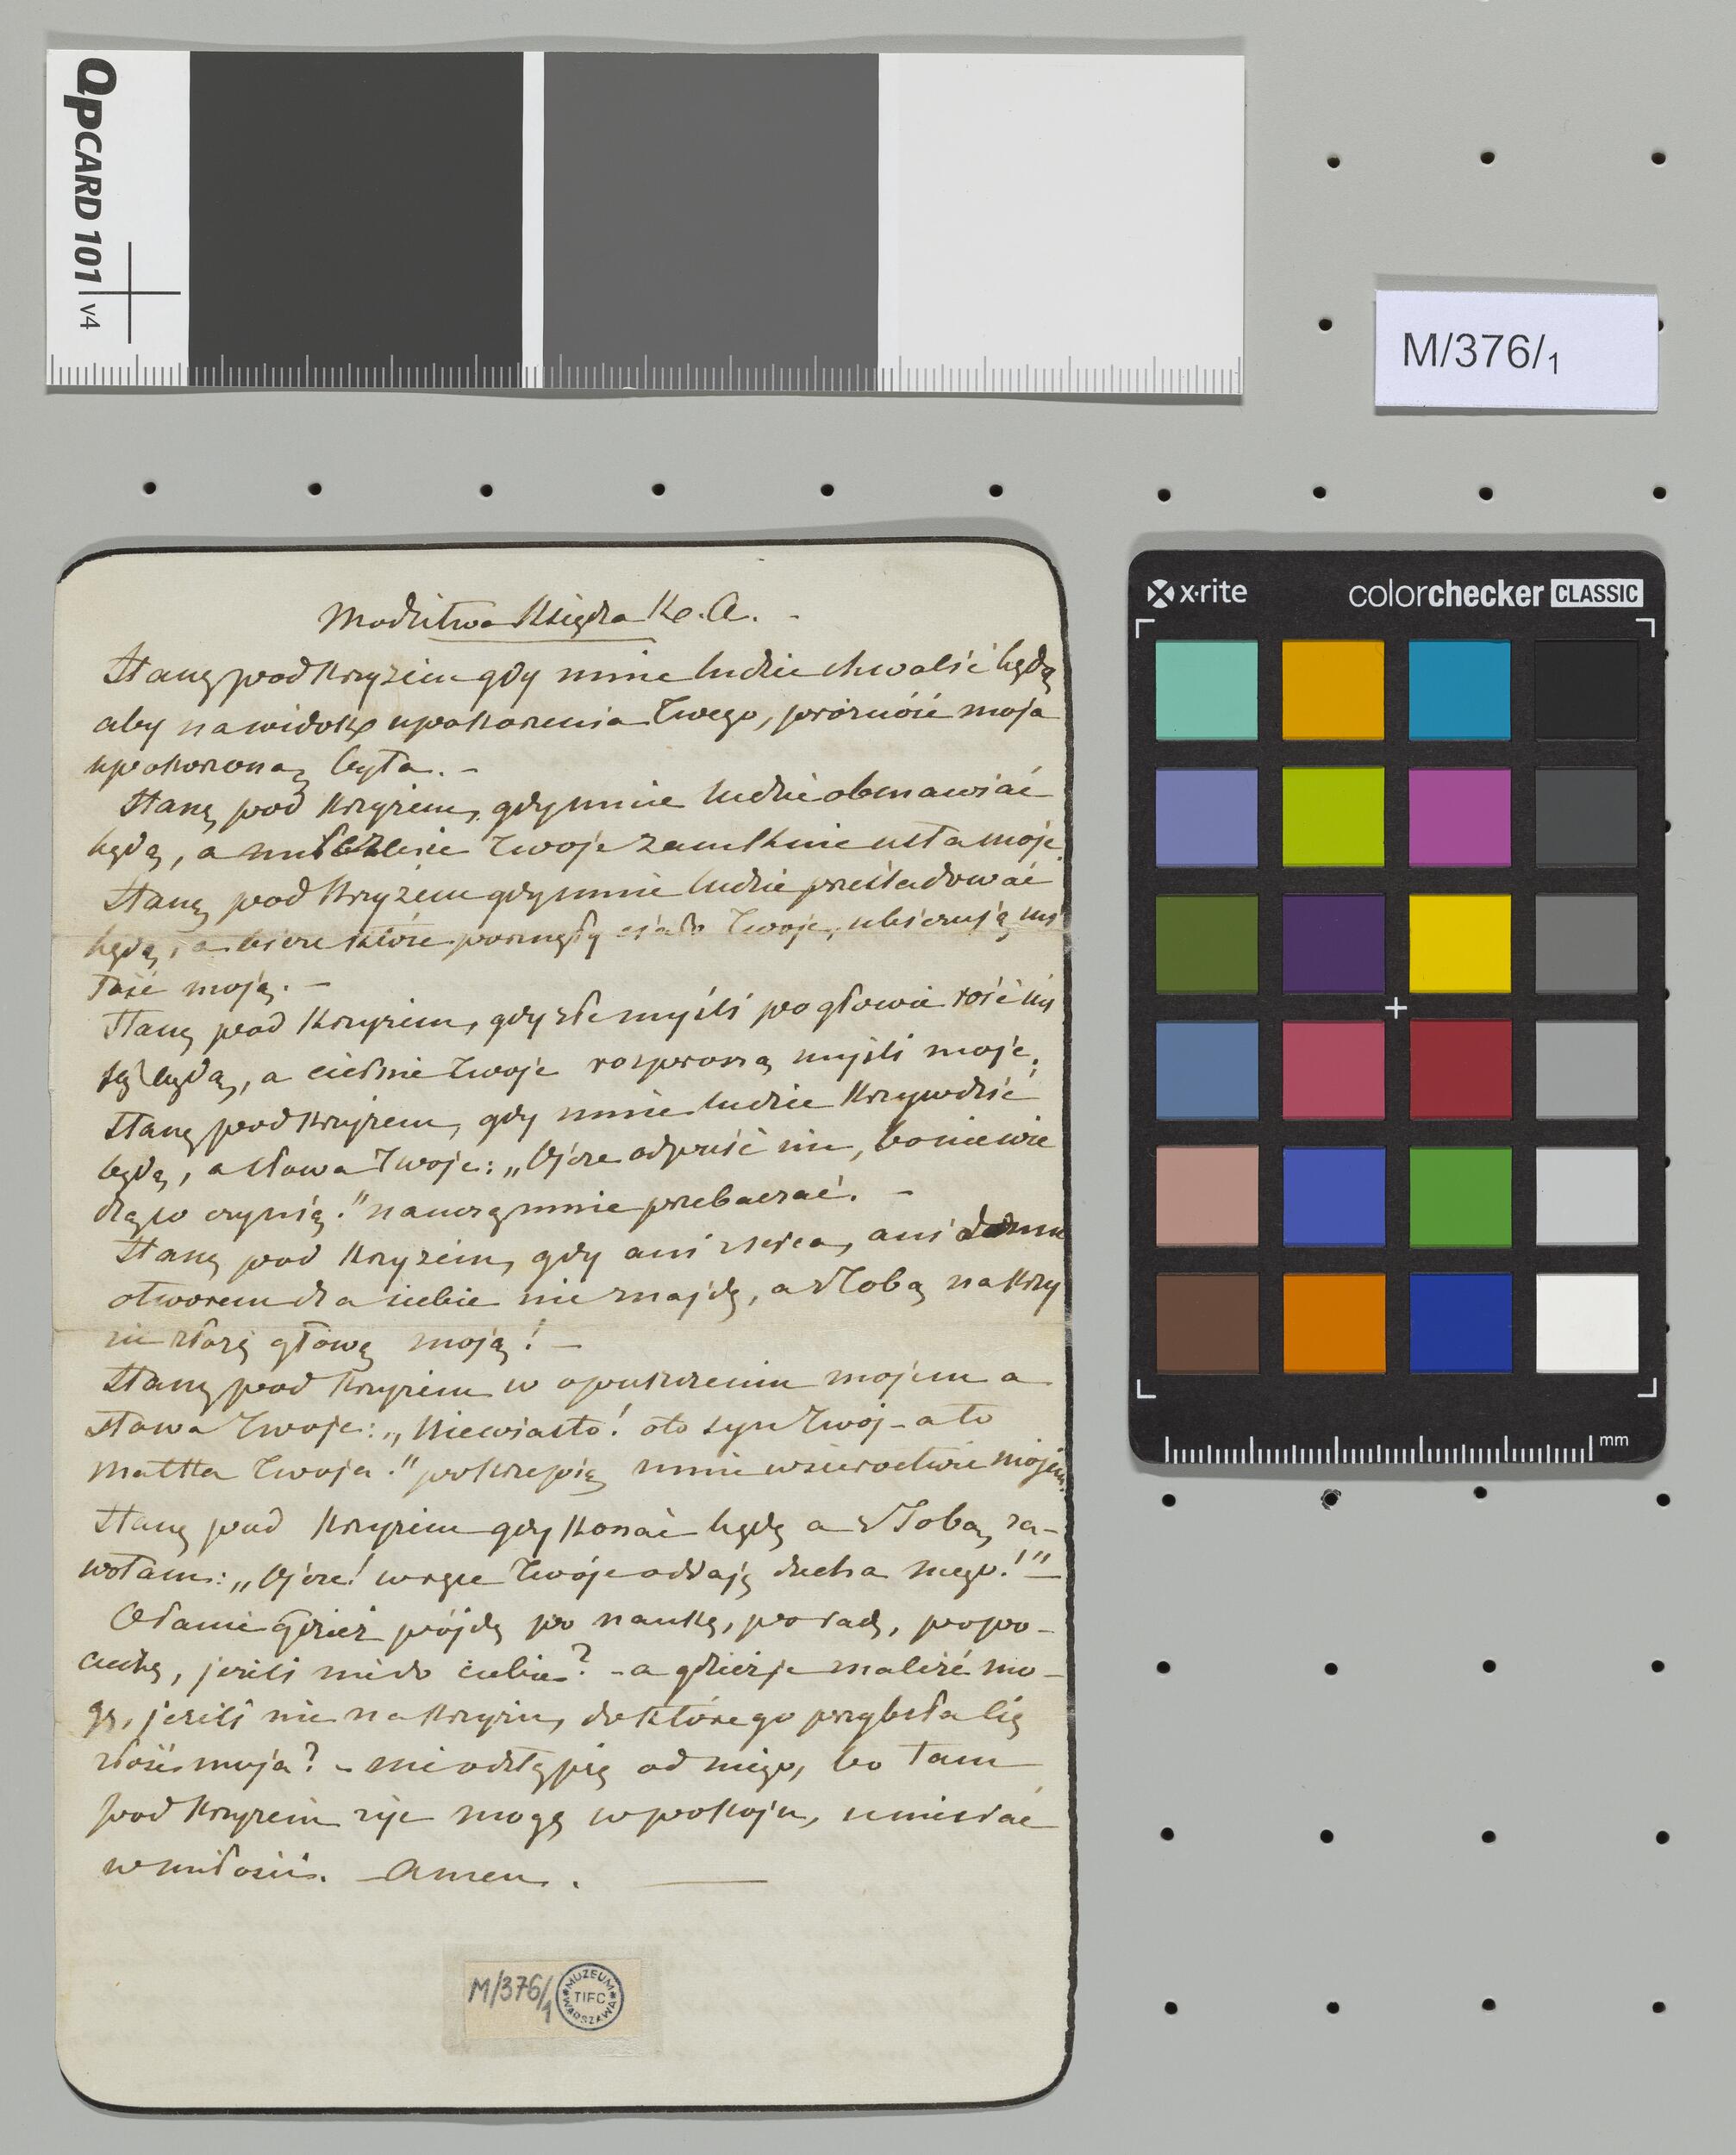 QPCARD 101 v4
M/376/1
x·rite colorchecker CLASSIC
mm
Modlitwa Księdza K. A. -
Stanę pod Krzyżem gdy mnie ludzie chwalić będą
aby na widok upokorzenia Twego, próżność moja
upokorzoną była. -
Stanę pod Krzyżem, gdy mnie ludzie obmawiać
będą, a milczenie Twoje zamknie usta moje
Stanę pod Krzyżem gdy mnie ludzie prześladować
będą, a które ciało Twoje,
moją. -
Stanę pod Krzyżem, gdy złe myśli po głowie
będą, a ciernie Twoje rozproszą myśli moje.
Stanę pod Krzyżem, gdy mnie ludzie Krzywdzić
będą, a słowa Twoje: „Ojcze odpuść im, bo nie wie
dzą co czynią." nauczą mnie przebaczać. -
Stanę pod Krzyżem, gdy ani serca, ani domu
otworem dla siebie nie znajdę, a z Tobą na Krzy
żu złożę głowę moją! -
Stanę pod Krzyżem w opuszczeniu mojem a
słowa Twoje: „Niewiasto! oto syn Twój - a to
Matka Twoja." pokrzepią mnie w sieroctwie mojem.
Stanę pod Krzyżem gdy Konać będę a z Tobą, za-
wołam: „Ojcze! w ręce Twoje oddaję ducha mego!" -
O Panie gdzież pójdę po naukę, po radę, po po-
ciechę, jeżeli nie do ciebie? - a gdzież je znaleźć mo-
gę, jeżeli nie na Krzyżu, do którego przybiła Cię
złość moja? - nie odstąpię od niego, bo tam
pod Krzyżem żyć mogę w pokoju, umierać
w miłości. - Amen. -
M/376/1
MUZEUM TIFC WARSZAWA